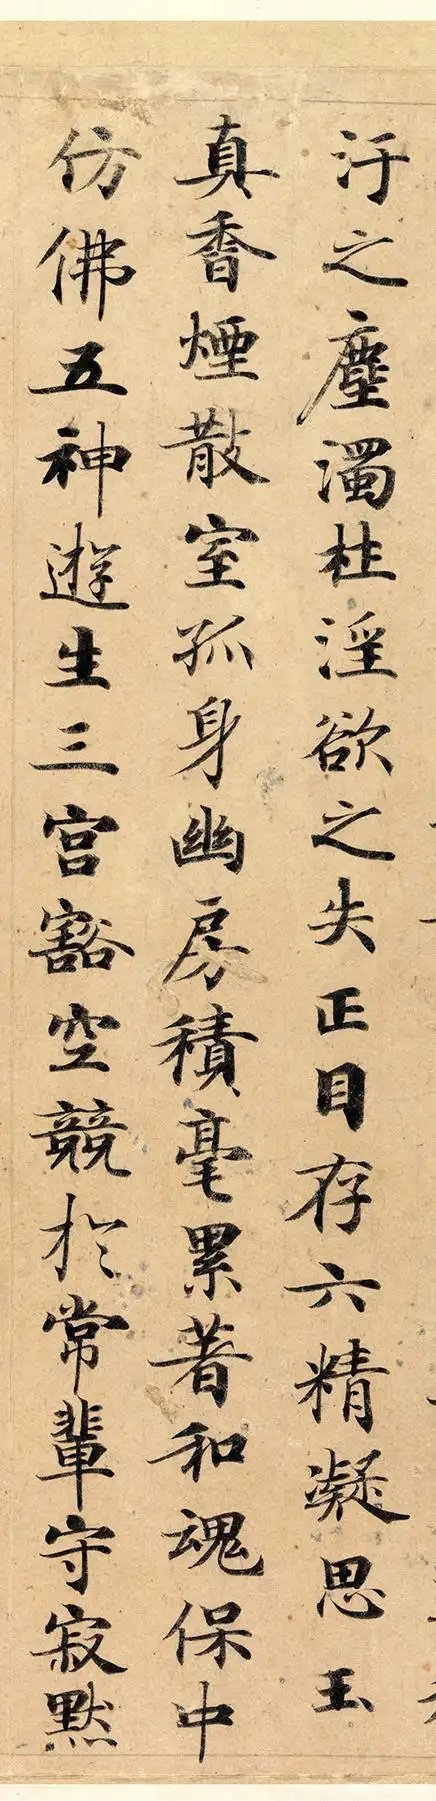 汙之塵濁柱淫欲之失正目存六精凝思玉
真香煙散室孤身幽房積毫累著和魂保中
仿佛五神遊生三宮豁空競於常輩守寂默